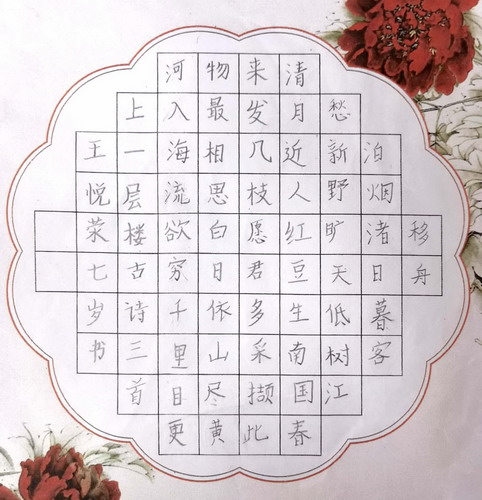 移舟
泊烟渚日暮客
愁新野旷天低树江
清月近人红豆生南国春
来发几枝愿君多采撷此
物最相思白日依山尽黄
河入海流欲穷千里目更
上一层楼古诗三首
王悦荥七岁书